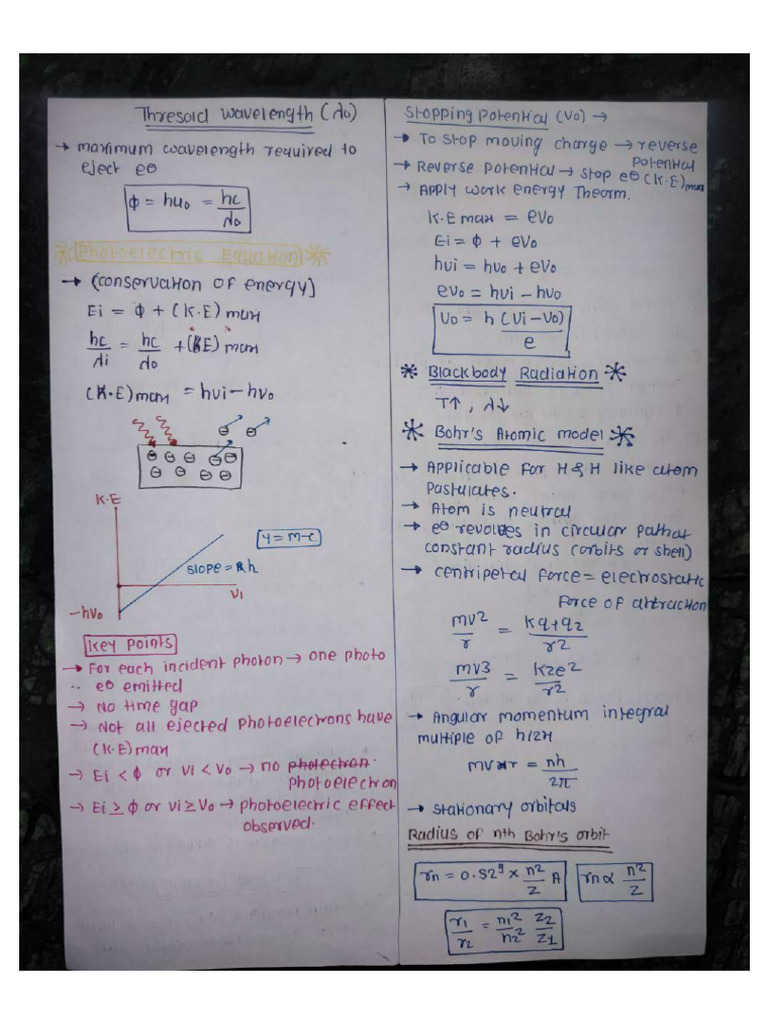 Thresold wavelength (λ0)
→ maximum wavelength required to
eject e⊖
ϕ = hυ0 = hc/λ0
* Photoelectric Equation *
→ (conservation of energy)
Ei = ϕ + (K.E) max
hc/λi = hc/λ0 + (KE) max
(K.E) max = hνi - hν0
⊖ ⊖
⊖ ⊖ ⊖ ⊖ ⊖
⊖ ⊖ ⊖ ⊖
K.E
y = m-c
slope = h
νi
-hν0
Key points
→ For each incident photon → one photo
e⊖ emitted
→ No time gap
→ Not all ejected photoelectrons have
(K.E) max
→ Ei < ϕ or νi < ν0 → no photectron.
photoelectron
→ Ei ≥ ϕ or νi ≥ ν0 → photoelectric effect
observed.
Stopping potential (V0) →
→ To stop moving charge → reverse
potential
→ Reverse potential → stop e⊖ (K.E) max
→ Apply work energy Theorm.
K.E max = eV0
Ei = ϕ + eV0
hνi = hν0 + eV0
eV0 = hνi - hν0
V0 = h (νi - ν0)/e
* Blackbody Radiation *
T↑, λ↓
* Bohr's Atomic model *
→ Applicable for H & H like atom
Pastulates.
→ Atom is neutral
→ e⊖ revolves in circular path at
constant radius (orbits or shell)
→ centripetal force = electrostatic
force of attraction
mv2/r = Kq1q2/r2
mv3/r = Kze2/r2
→ Angular momentum integral
multiple of h/2π
mvr = nh/2π
→ stationary orbitals
Radius of nth Bohr's orbit
rn = 0.529 × n2/Z A
rn ∝ n2/Z
r1/r2 = n1 2/n2 2 Z2/Z1